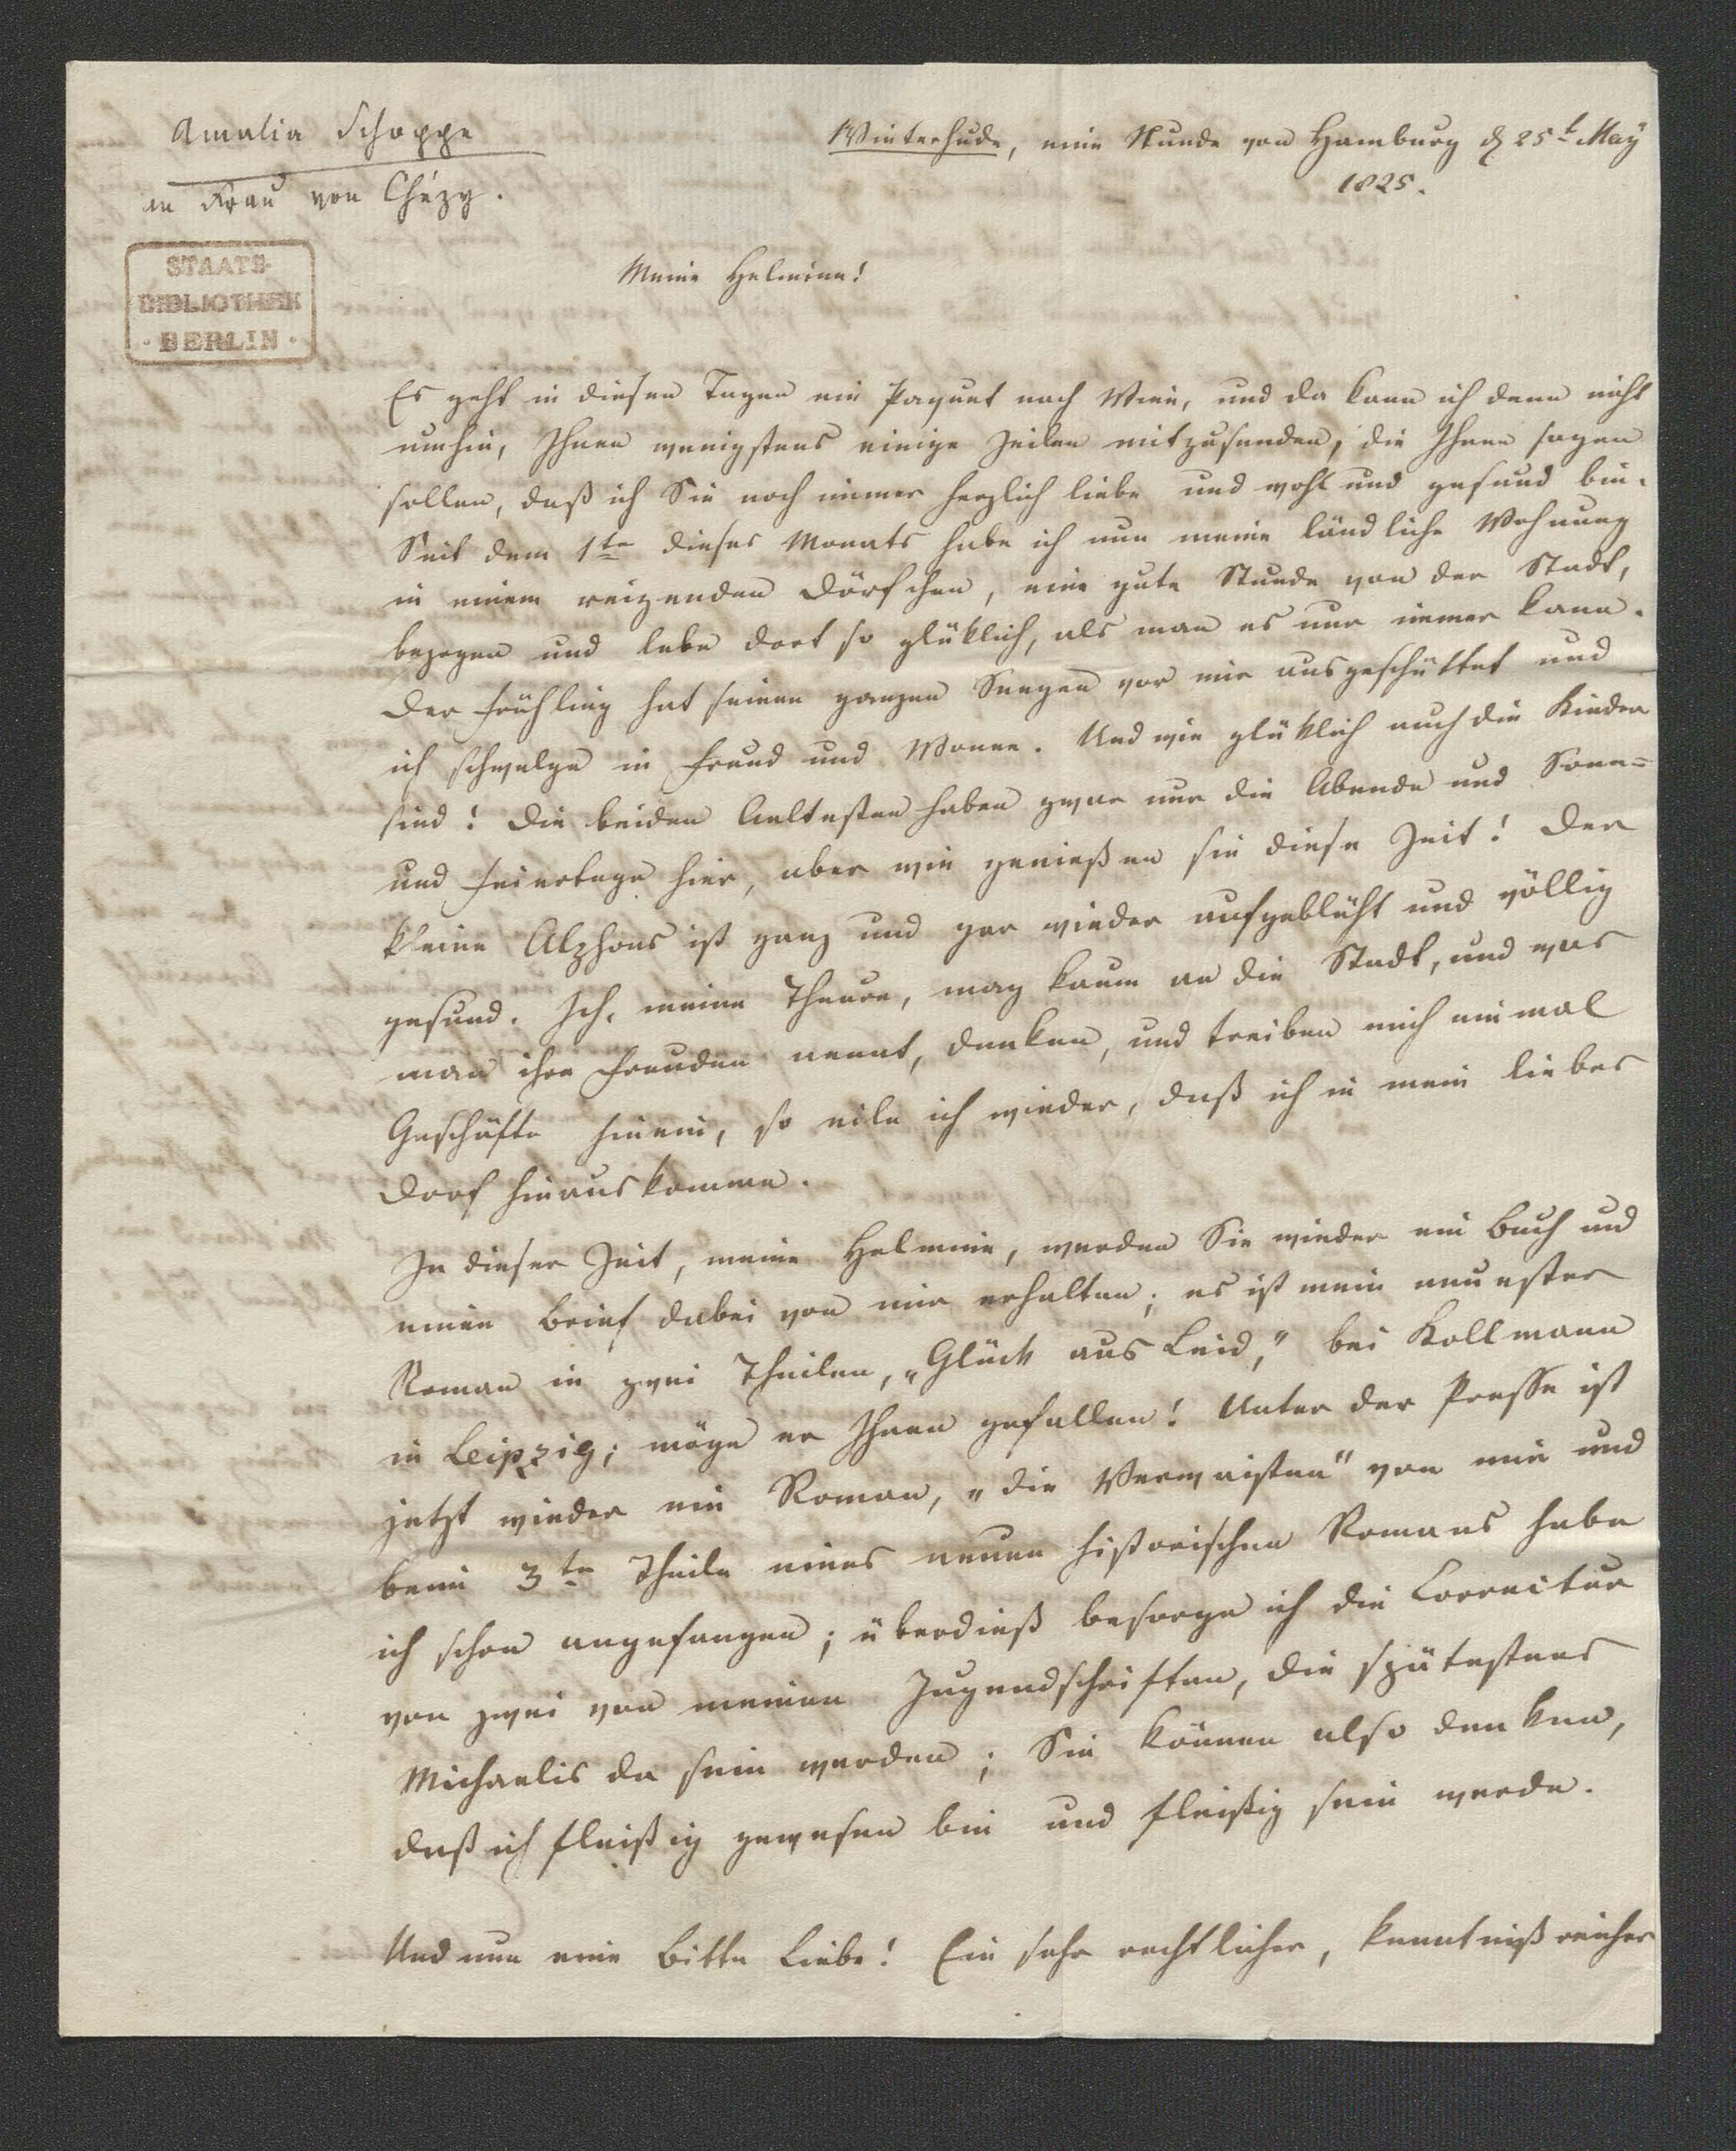 Amalia Schoppe
an Frau von Chézy.
STAATS-
BIBLIOTHEK
· BERLIN ·
Winterhude, eine Stunde von Hamburg d 25t May
1825.
Meine Helmina!
Es geht in diesen Tagen ein Paquet nach Wien, und da kann ich denn nicht
umhin, Ihnen wenigstens einige Zeilen mitzusenden, die Ihnen sagen
sollen, daß ich Sie noch immer herzlich liebe und wohl und gesund bin.
Seit dem 1ten dieses Monats habe ich nun meine ländliche Wohnung
in einem reizenden Dörfchen, eine gute Stunde von der Stadt,
bezogen und lebe dort so glüklich, als man es nur immer kann.
Der Frühling hat seinen ganzen Seegen vor mir ausgeschüttet und
ich schwelge in Freud und Wonne. Und wie glüklich auch die Kinder
sind! Die beiden Aeltesten haben zwar nur die Abende und Sonn=
und Feiertage hier, aber wie genießen sie diese Zeit! Der
kleine Alphons ist ganz und gar wieder aufgeblüht und völlig
gesund. Ich, meine Theure, mag kaum an die Stadt, und was
man ihre Freuden nennt, denken, und treiben mich einmal
Geschäfte hinein, so eile ich wieder, daß ich in mein liebes
Dorf hinauskomme.
In dieser Zeit, meine Helmine, werden Sie wieder ein Buch und
einen Brief dabei von mir erhalten; es ist mein neuester
Roman in zwei Theilen, „Glück aus Leid," bei Kollmann
in Leipzig; möge er Ihnen gefallen! Unter der Presse ist
jetzt wieder ein Roman, „die Verwaisten" von mir und
beim 3ten Theile eines neuen historischen Romans habe
ich schon angefangen; überdieß besorge ich die Correctur
von zwei von meinen Jugendschriften, die spätestens
Michaelis da sein werden; Sie können also denken,
daß ich fleißig gewesen bin und fleißig sein werde.
Und nun eine Bitte Liebe! Ein sehr rechtlicher, kenntnißreicher